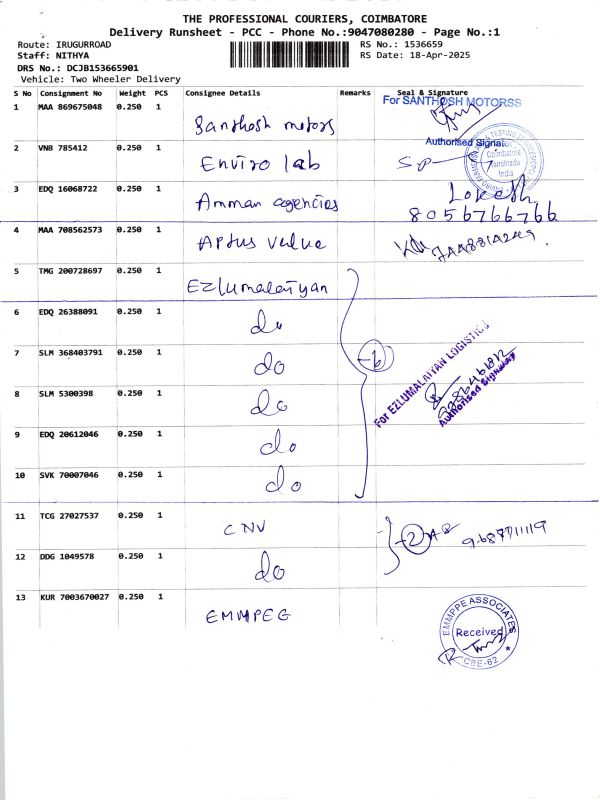 THE PROFESSIONAL COURIERS, COIMBATORE
Delivery Runsheet - PCC - Phone No.:9047080280 - Page No.:1
Route: IRUGURROAD
RS No.: 1536659
Staff: NITHYA
RS Date: 18-Apr-2025
DRS No.: DCJB153665901
Vehicle: Two Wheeler Delivery
S No Consignment No Weight PCS Consignee Details Remarks Seal & Signature
1 MAA 869675048 0.250 1 Santhosh motors For SANTHOSH MOTORSS
Authorised Signatory
2 VNB 785412 0.250 1 Enviro lab SP
Coimbatore
Tamilnadu
India
3 EDQ 16068722 0.250 1 Amman agencies Lokesh
8056766766
4 MAA 708562573 0.250 1 Aptus value
5 TMG 200728697 0.250 1 Ezlumalaiyan
6 EDQ 26388091 0.250 1 do
7 SLM 368403791 0.250 1 do 6 For EZLUMALAIYAN LOGISTICS
Authorised Signatory
8 SLM 5300398 0.250 1 do
9 EDQ 20612046 0.250 1 do
10 SVK 70007046 0.250 1 do
11 TCG 27027537 0.250 1 CNV 2
12 DDG 1049578 0.250 1 do
13 KUR 7003670027 0.250 1 EMMPEG
EMMPPE ASSOCIATES
Received
CBE-62